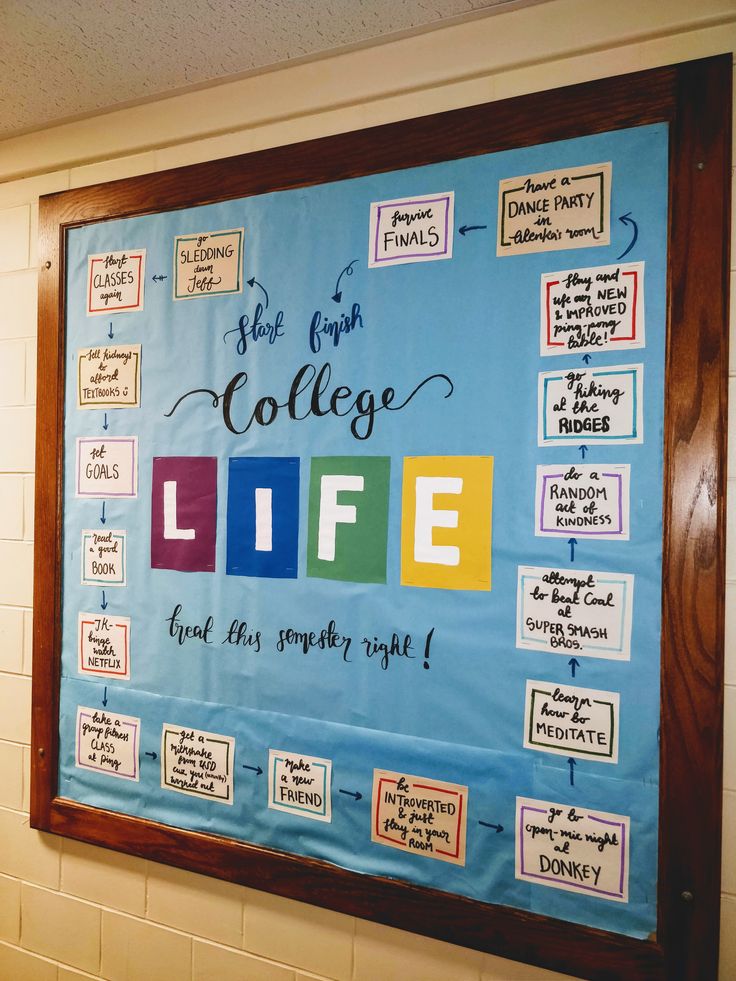 start
go
SLEDDING
down
Jeff
start
CLASSES
again
sell kidneys
to
afford
TEXTBOOKS
set
GOALS
read
a good
BOOK
JK-
binge
watch
NETFLIX
take a
group fitness
CLASS
at Ping
get a
milkshake
from
cuz you (mostly)
worked out
make
a new
FRIEND
be
INTROVERTED
& just
stay in your
ROOM
go to
open-mic night
at
DONKEY
learn
how to
MEDITATE
attempt
to beat Coal
at
SUPER SMASH
BROS.
do a
RANDOM
act of
KINDNESS
go hiking
at the
RIDGES
stay and
use our NEW
& IMPROVED
ping-pong
table!
have a
DANCE PARTY
in
Alenka's room
survive
FINALS
finish
College
LIFE
treat this semester right!